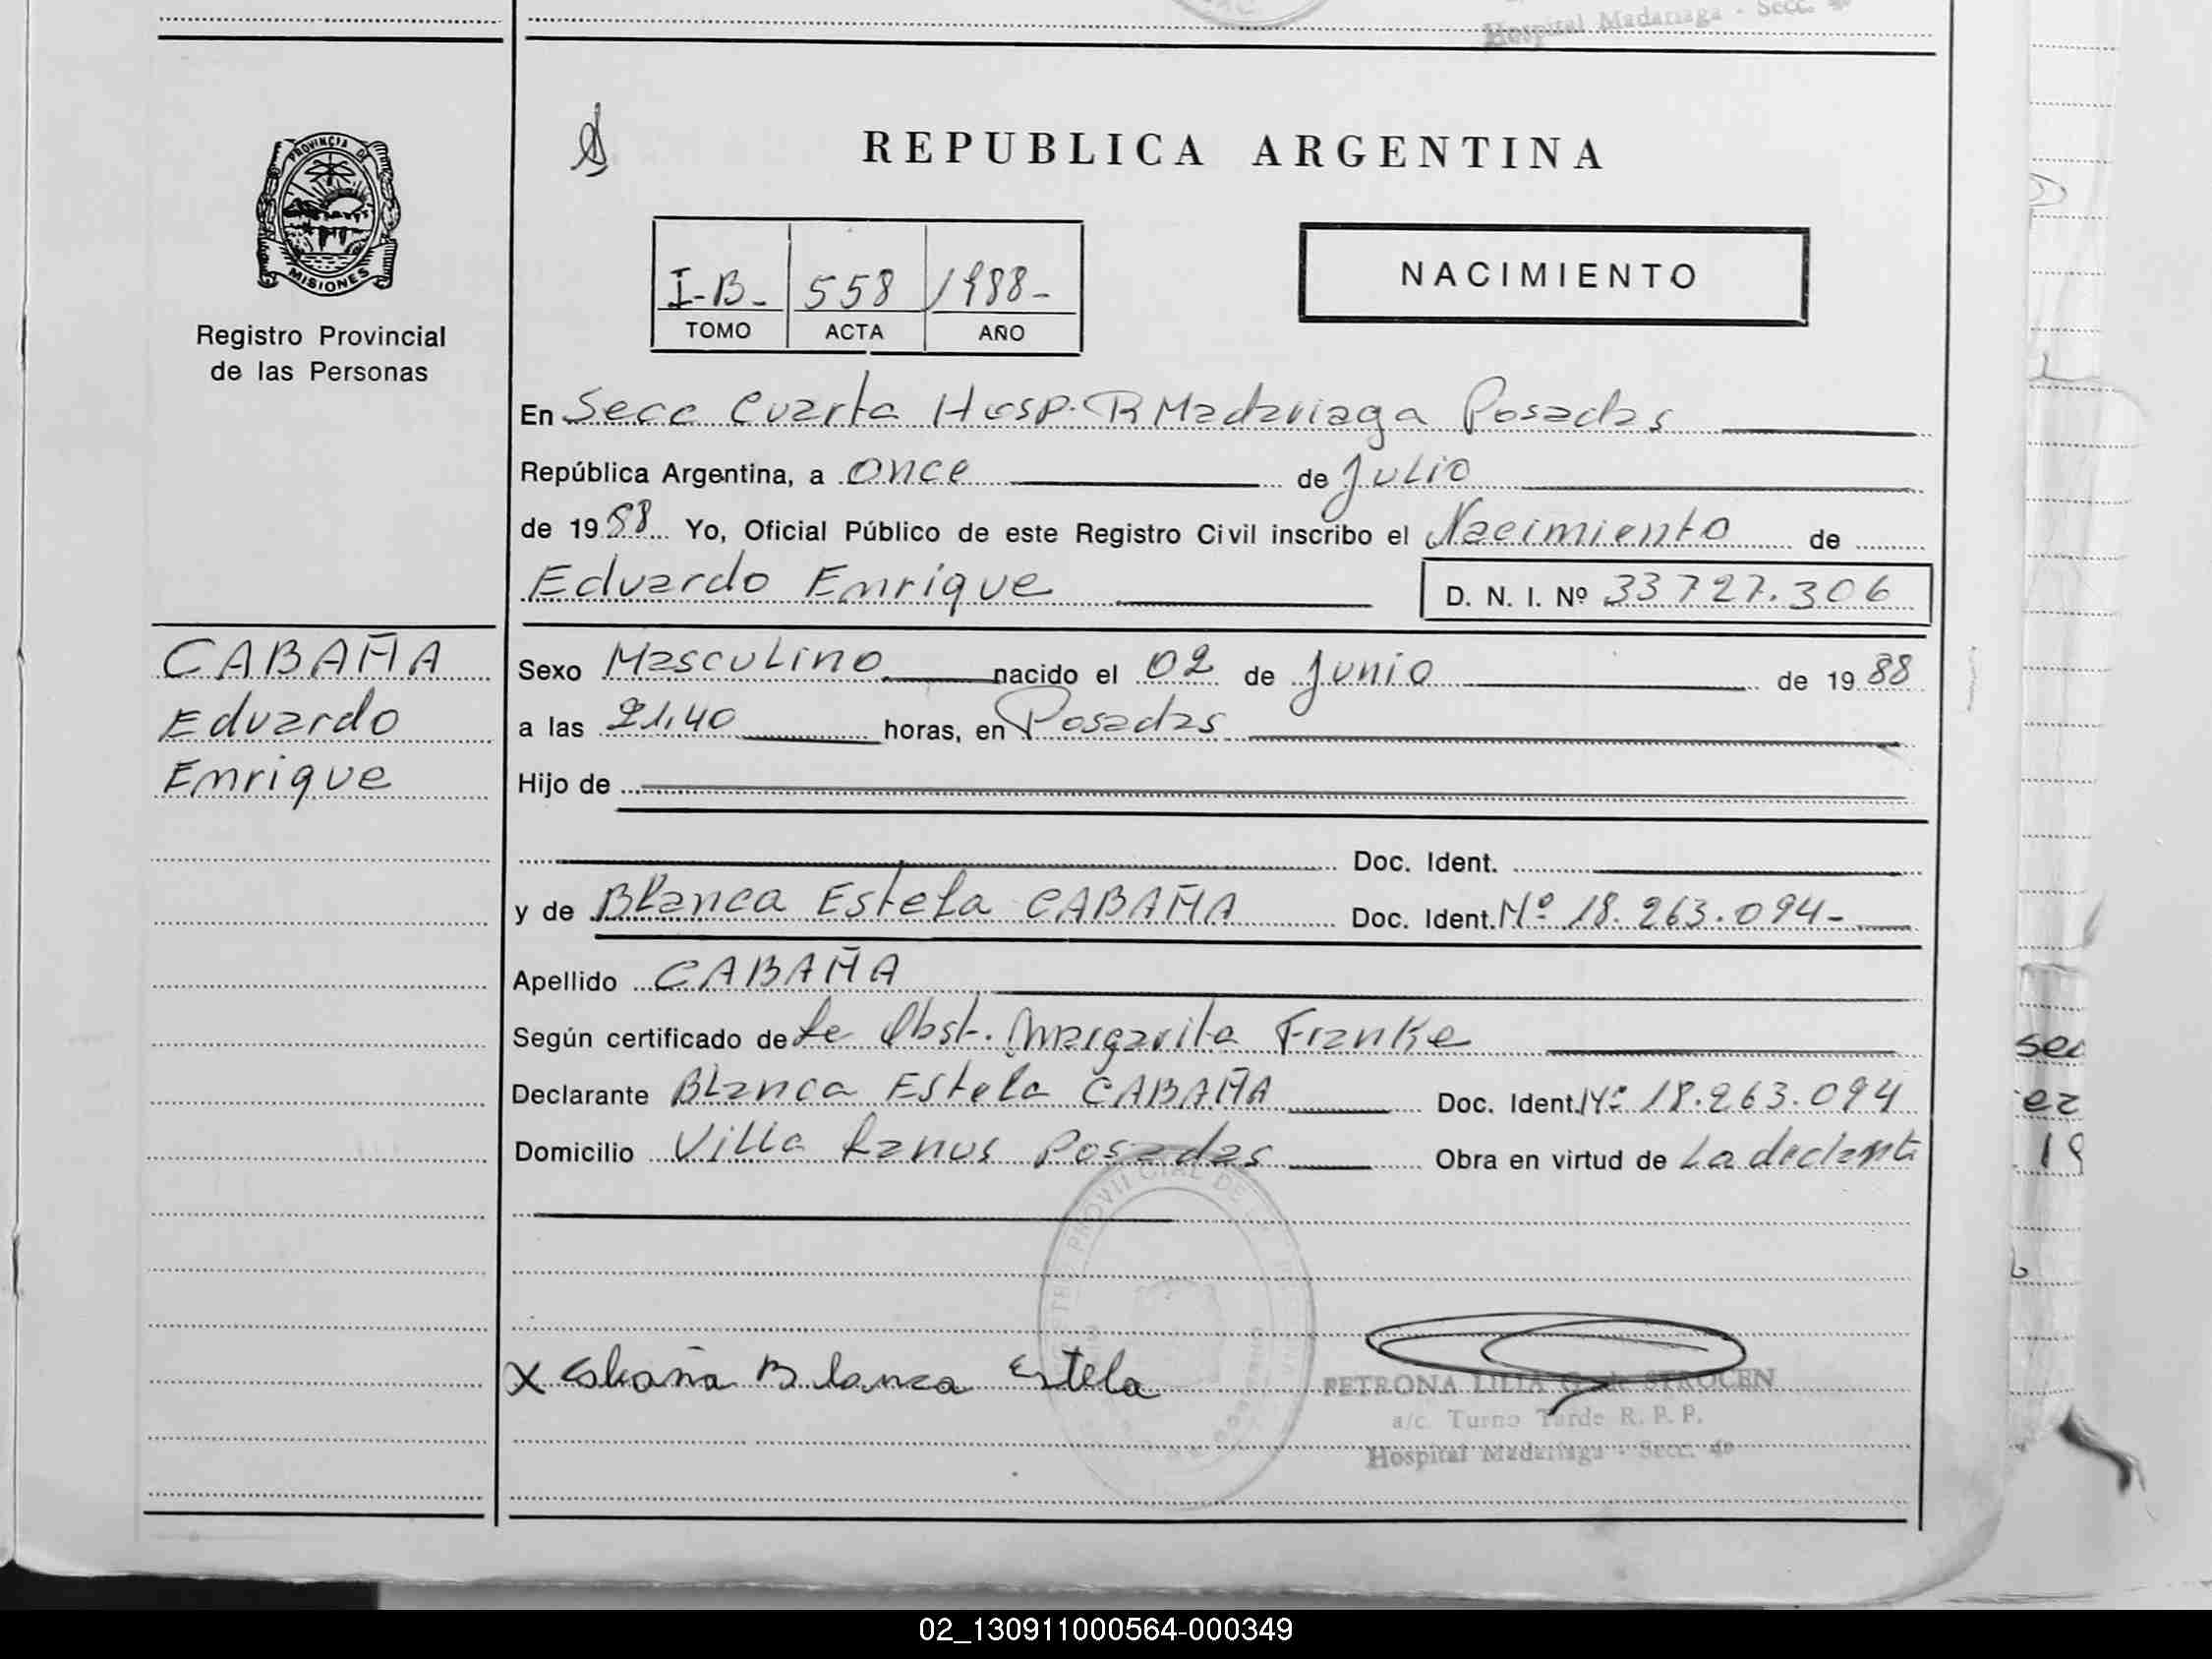 Hospital Madariaga - Secc. 4º
PROVINCIA DE
MISIONES
Registro Provincial
de las Personas
REPUBLICA ARGENTINA
NACIMIENTO
I-B- 558 1988-
TOMO ACTA AÑO
En Secc Cuarta Hosp. R Madariaga Posadas
República Argentina, a once de Julio
de 1988 Yo, Oficial Público de este Registro Civil inscribo el Nacimiento de
Eduardo Enrique D. N. I. Nº 33727.306
CABAÑA
Eduardo
Enrique
Sexo Masculino nacido el 02 de Junio de 1988
a las 21,40 horas, en Posadas
Hijo de
Doc. Ident.
y de Blanca Estela CABAÑA Doc. Ident. Nº 18.263.094-
Apellido CABAÑA
Según certificado de la Obst. Margarita Franke
Declarante Blanca Estela CABAÑA Doc. Ident. Nº 18.263.094
Domicilio Villa Lanus Posadas Obra en virtud de La declarante
X Cabaña Blanca Estela
PETRONA LILIA G. de STROCEN
a/c. Turno Tarde R. P. P.
Hospital Madariaga - Secc. 4º
02_130911000564-000349